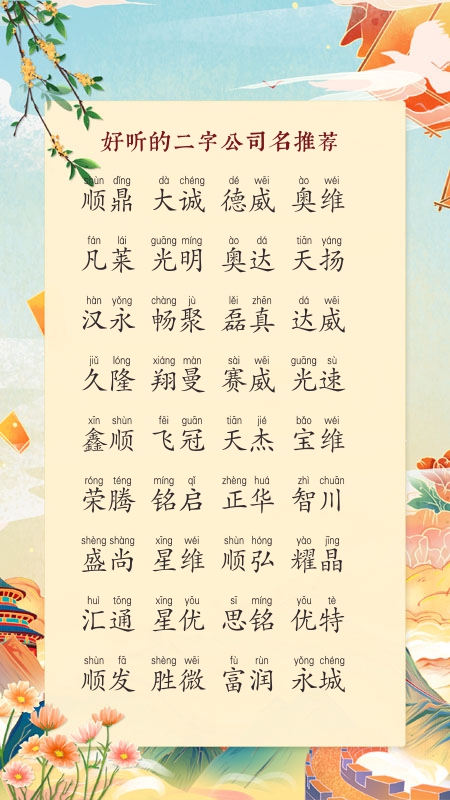 好听的二字公司名推荐
shùn dǐng dà chéng dé wēi ào wéi
顺鼎 大诚 德威 奥维
fán lái guāng míng ào dá tiān yáng
凡莱 光明 奥达 天扬
hàn yǒng chàng jù lěi zhēn dá wēi
汉永 畅聚 磊真 达威
jiǔ lóng xiáng màn sài wēi guāng sù
久隆 翔曼 赛威 光速
xīn shùn fēi guān tiān jié bǎo wéi
鑫顺 飞冠 天杰 宝维
róng téng míng qǐ zhèng huá zhì chuān
荣腾 铭启 正华 智川
shèng shàng xīng wéi shùn hóng yào jīng
盛尚 星维 顺弘 耀晶
huì tōng xīng yōu sī míng yōu tè
汇通 星优 思铭 优特
shùn fā shèng wēi fù rùn yǒng chéng
顺发 胜微 富润 永城